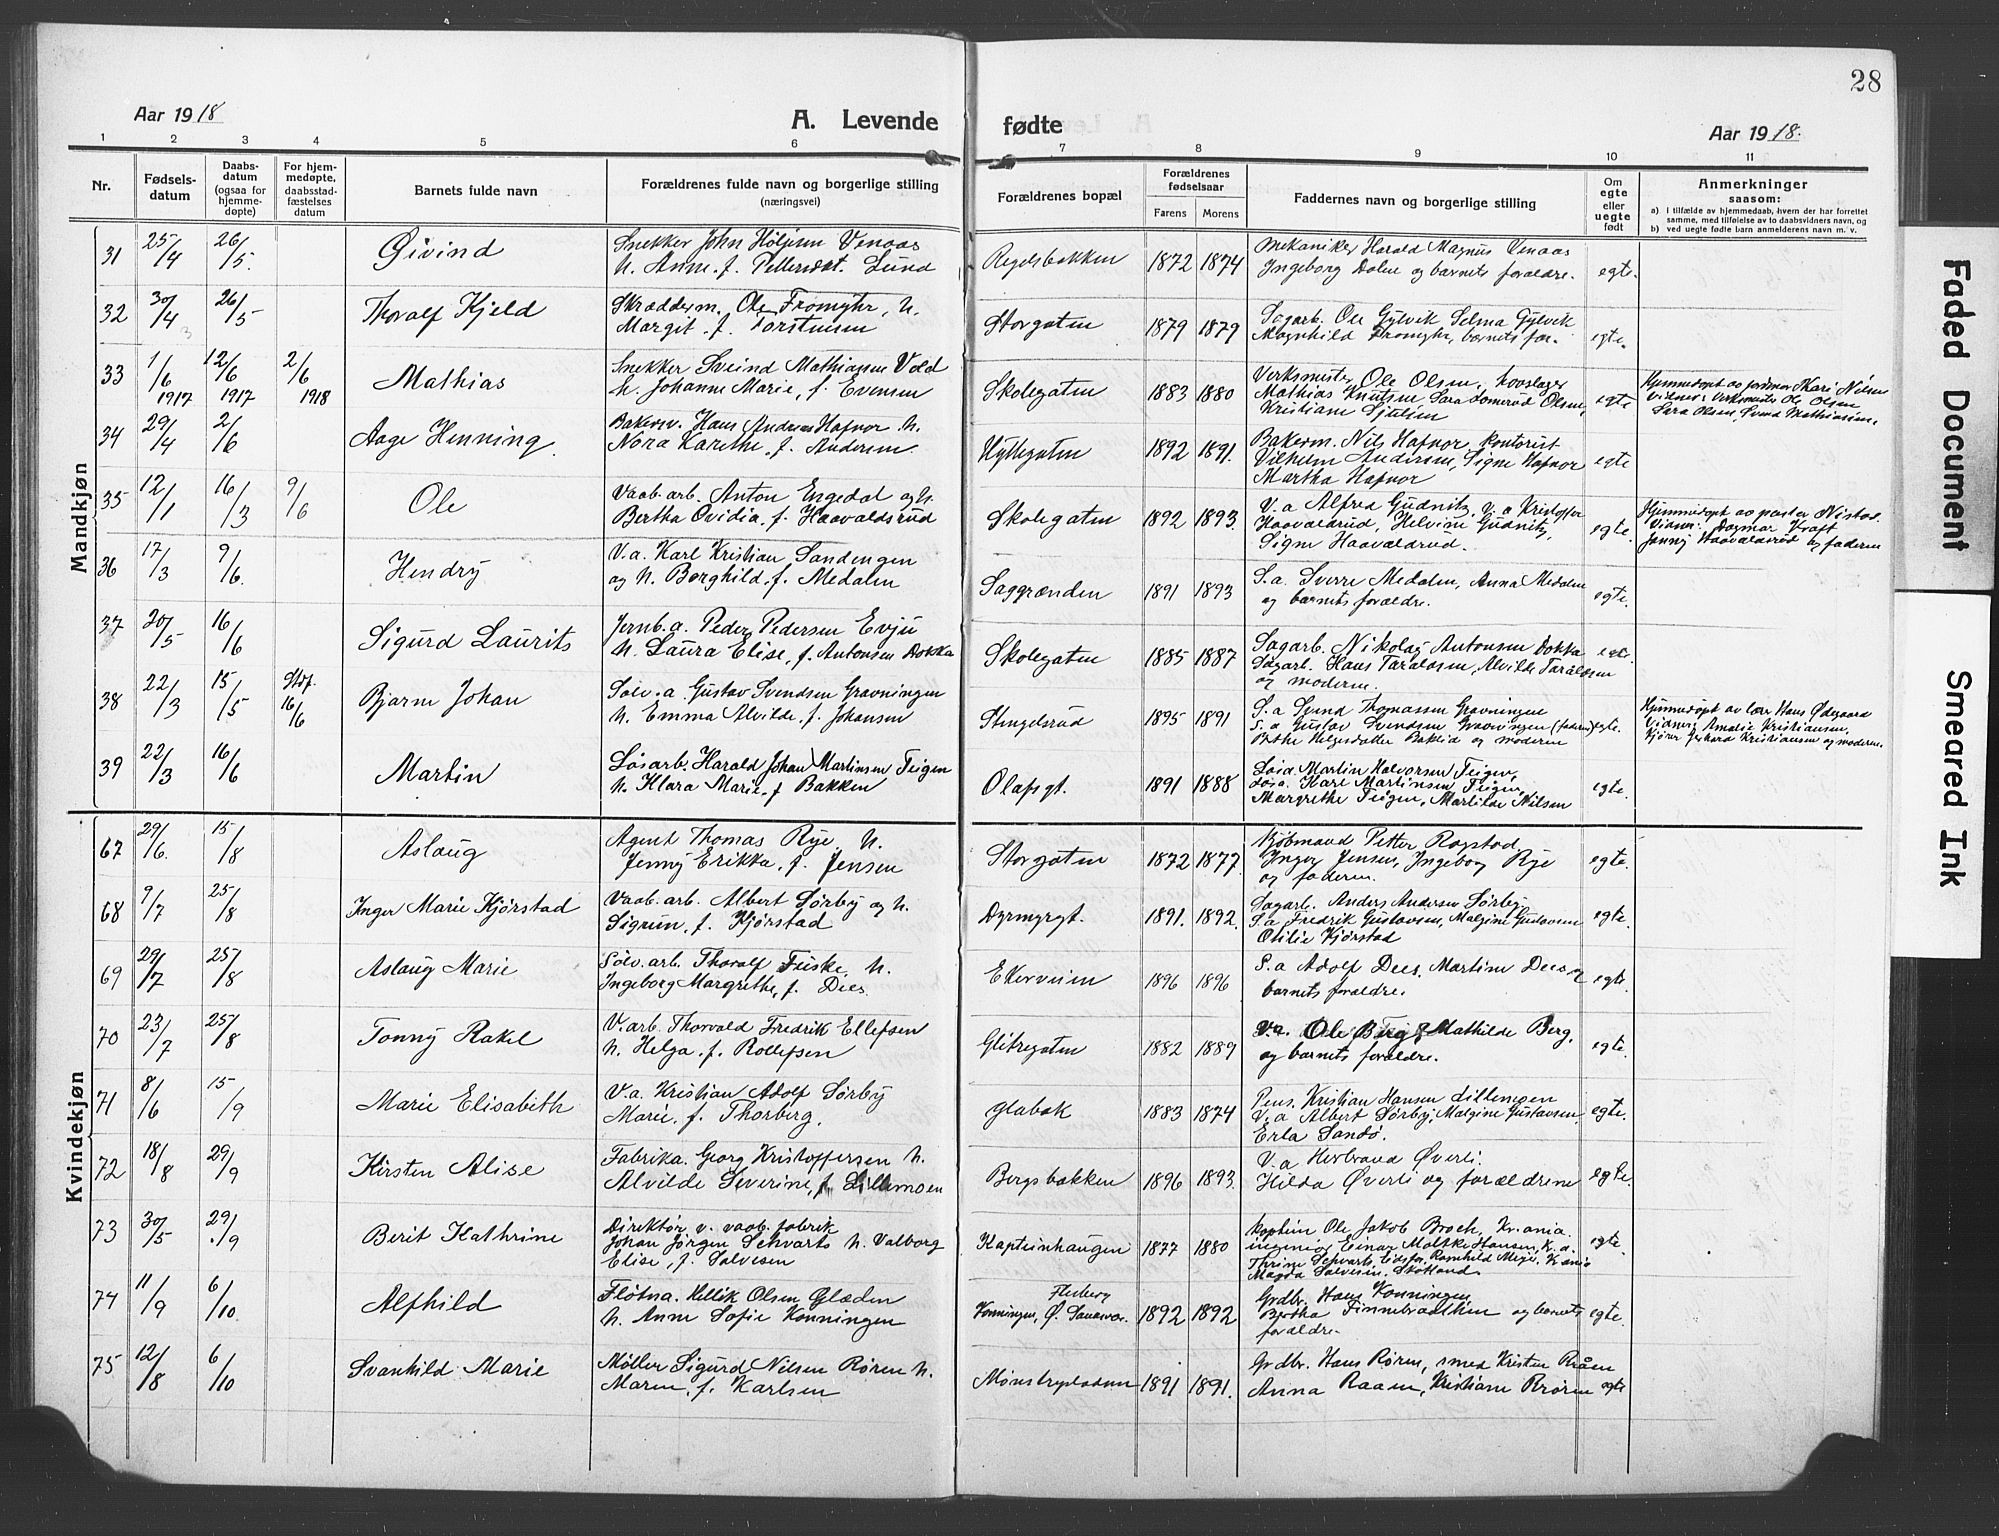 28
Aar 1918
A. Levende fødte
Aar 1918.
1 2 3 4 5 6 7 8 9 10 11
Nr.
Fødsels-
datum
Daabs-
datum
(ogsaa for
hjemme-
døpte)
For hjem-
medøpte,
daabsstad-
fæstelses
datum
Barnets fulde navn
Forældrenes fulde navn og borgerlige stilling
(næringsvei)
Forældrenes bopæl
Forældrenes
fødselsaar
Farens Morens
Faddernes navn og borgerlige stilling
Om
egte
eller
uegte
født
Anmerkninger
saasom:
a) i tilfælde av hjemmedaab, hvem der har forrettet
samme, med tilføielse av to daabsvidners navn, og
b) ved uegte fødte barn anmelderens navn m. v.
Mandkjøn
31 25/4 26/5. Øivind
Snekker John Holjesen Venaas
h. Anne f. Lund
1872 1874
Mekaniker Harald Magnus Venaas
Ingeborg Dalen og barnets forældre. egte.
32 30/4 26/5 Thoralf Kjeld
Skrædderm. Ole Fromyhr, h.
Margit f. Torstensen
Storgaten 1879 1879
Sagarb. Ole Gylvik Selma Gylvik
Magnhild Fromyhr, barnets far. egte.
33 1/6 1917 12/6 1917 2/6 1918 Mathias
Snekker Sveind Mathiasen Vold
h. Johanne Marie, f. Evensen
Skolegaten 1883 1880
Verksmester Ole Olsen,
Mathias Knutsen, Sara Olsen,
Kristiane egte
Hjemmedøpt av jordmor Kari Nilsen
vidner: Verksmester Ole Olsen
Sara Olsen, Svend Mathiassen.
34 29/4 2/6 Aage Henning
Bakersv. Hans Andreas Hafnor h.
Nora Karethe f. Andersen
Hyttegaten 1892 1891.
Bakerm. Nils Hafnor, kontorist
Vilhelm Andersen, Signe Hafnor
Martha Hafnor egte
35 12/1 16/3 9/6 Ole
Vaab. arb. Anton Engedal og h.
Bertha Ovidia f. Haavaldsrud
Skolegaten 1892 1893.
V. a Alfred Gudnitz, v. a Kristoffer
Haavaldrud, Helvine Gudnitz,
Signe Haavaldrud. egte.
Hjemmedøpt av pastor Nistad.
Vidner: Dagmar Kraft
Jenny Haavaldsrud og faderen
36 17/3 9/6. Hendry
V. a. Karl Kristian Sandengen
og h. Borghild f. Medalen
Saggrænden 1891 1893
S. a. Sverre Medalen, Anna Medalen
og barnets forældre. egte.
37 20/5 16/6 Sigurd Laurits
Jernb. a. Peder Pedersen Evju
h. Laura Elise, f. Antonsen Dokka
Skolegaten 1885 1887
Sagarb. Nikolai Antonsen Dokka
Sagarb. Hans Taraldsen, Alvilde Taraldsen
og moderen. egte.
38 22/3 15/5 Stdf. 16/6 Bjarne Johan
Sølv. a. Gustav Svendsen Gravningen
h. Emma Alvilde f. Johansen
Stengelsrud 1895 1891
S. a Svend Thomassen Gravningen
S. a Gustav Svendsen Gravningen (faderen)
Helgesdatter Baklid og moderen egte.
Hjemmedøpt av lærer Hans Ødegaard
Vidner: Amalie Kristiansen,
Kristiansen og moderen.
39 22/3 16/6 Martin
Løsarb. Harald Johan Martinsen Teigen
h. Klara Marie f. Bakken
Olafsgt. 1891 1888
Løsa. Martin Halvorsen Teigen,
Løsa. Karl Martinsen Teigen,
Margrethe Teigen, Martilde Nilsen egte.
Kvindekjøn
67 29/6. 15/8 Aslaug
Agent Thomas Rye. h.
Jenny Erikka, f. Jensen
Storgaten 1872 1877.
Kjøbmand Petter Rogstad,
Inger Jensen, Ingeborg Rye
og faderen. egte
68 9/7 25/8 Inger Marie Kjørstad
Vaab. arb. Albert Sørby og h.
Sigrun, f. Kjørstad
Dyrmyrgt. 1891. 1892.
Sagarb. Anders Andersen Sørby,
S. a Fredrik Gustavsen, Malgine Gustavsen
Otilie Kjørstad egte.
69 29/7 25/8 Aslaug Marie
Sølv. arb. Thoralf Fiske, h.
Ingeborg Margrethe, f. Dees.
Ekerveien 1896 1896
S. a Adolf Dees. Martine Dees og
barnets forældre. egte.
70 23/7 25/8 Tonny Rakel
V. arb. Thorvald Fredrik Ellefsen
h. Helga f. Rollefsen
Glitregaten 1882 1889
V. a. Ole Berg, Mathilde Berg,
og barnets forældre. egte.
71 8/6 15/9 Marie Elisabeth
V. a. Kristian Adolf Sørby
Marie, f. Thorberg.
Glabak 1883 1874
Pens. Kristian Hansen Lillemoen
V. a Albert Sørby, Malgine Gustavsen,
Erla Sandø. egte.
72 18/8 29/9 Kirsten Alise
Fabrika. Georg Kristoffersen h.
Alvilde Severine, f. Lillemoen
Bergsbakken 1896 1893.
V. a Herbrand Øverli.
Hilda Øverli og forældrene egte.
73 30/5 29/9 Berit Kathrine
Direktør v. vaab. fabrik
Johan Jørgen Schvarts h. Valborg
Elise, f. Salvesen
Kapteinhaugen 1877 1880
kaptein Ole Jakob Broch, Kr.ania.
ingeniør Einar Moltke Hansen, K. a.
Schvarts, Eidsfos, Ramhild Meyer, K.ania
Magda Salvesen, Skotland. egte.
74 11/9 6/10 Alfhild
Fløtna. Hellik Olsen Glæden
h. Anne Sofie Konningen
Flesberg
Konningen, Ø. Sandsvær. 1892 1892
Grdbr. Hans Konningen,
Bertha Finnebraathen og barnets
forældre. egte.
75 12/8 6/10 Svanhild Marie
Møller Sigurd Nilsen Røren h.
Maren, f. Karlsen
1891 1891.
Grdbr. Hans Røren, smed Kristen Raaen
Anna Raaen, Kristiane Røren egte
Faded Document
Smeared Ink